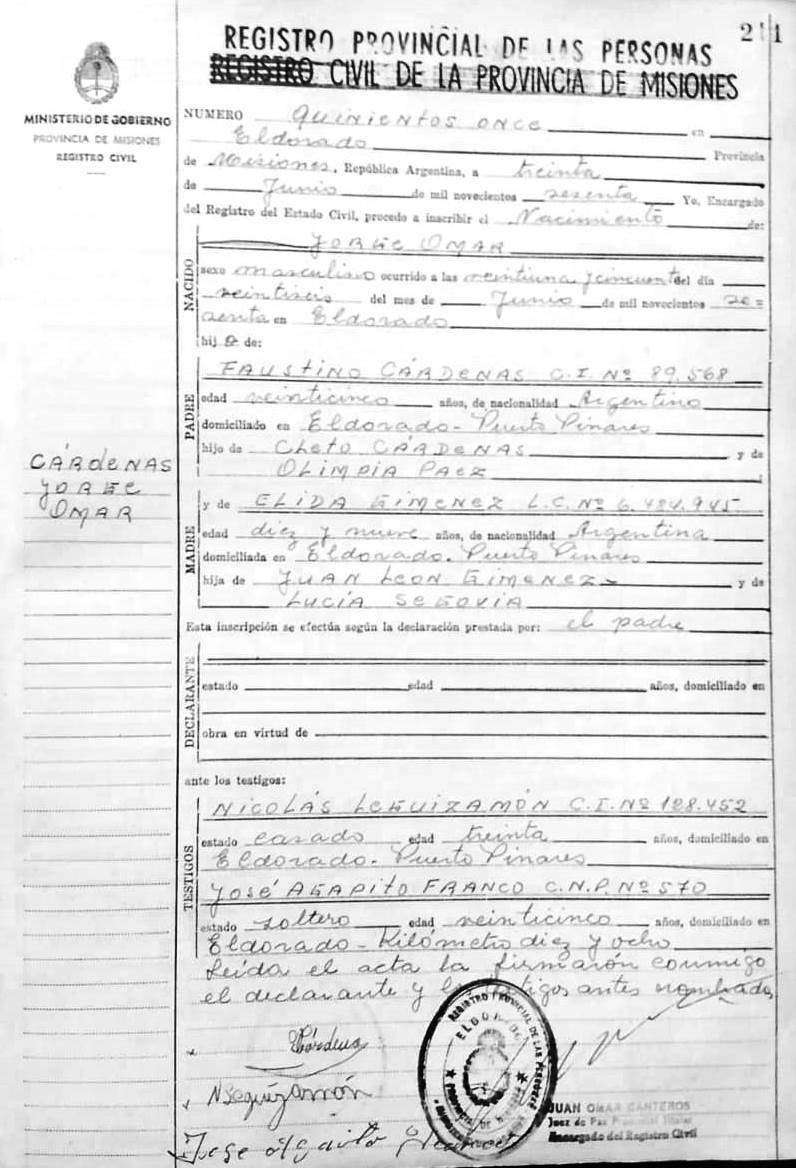 211
REGISTRO PROVINCIAL DE LAS PERSONAS
REGISTRO CIVIL DE LA PROVINCIA DE MISIONES
MINISTERIO DE GOBIERNO
PROVINCIA DE MISIONES
REGISTRO CIVIL
NUMERO Quinientos once en
Eldorado Provincia
de Misiones, República Argentina, a treinta
de Junio de mil novecientos sesenta Yo, Encargado
del Registro del Estado Civil, procedo a inscribir el Nacimiento de:
NACIDO
JORGE OMAR
sexo masculino ocurrido a las veintiuna y cincuenta del día
veintiseis del mes de Junio de mil novecientos se=
senta en Eldorado
hijo de:
PADRE
FAUSTINO CÁRDENAS C.I. Nº 89.568
edad veinticinco años, de nacionalidad Argentino
domiciliado en Eldorado - Puerto Pinares
hijo de CLETO CÁRDENAS y de
OLIMPIA PAEZ
CÁRDENAS
JORGE
OMAR
MADRE
y de ELIDA GIMENEZ L.C. Nº 6.484.945
edad diez y nueve años, de nacionalidad Argentina
domiciliada en Eldorado. Puerto Pinares
hija de JUAN LEON GIMENEZ y de
LUCÍA SEGOVIA
Esta inscripción se efectúa según la declaración prestada por: el padre
DECLARANTE
estado edad años, domiciliado en
obra en virtud de
ante los testigos:
TESTIGOS
NICOLÁS LEGUIZAMÓN C.I. Nº 128.452
estado casado edad treinta años, domiciliado en
Eldorado - Puerto Pinares
JOSÉ AGAPITO FRANCO C.N.P. Nº 570
estado soltero edad veinticinco años, domiciliado en
Eldorado - Kilómetro diez y ocho
Leída el acta la firmarón conmigo
el declarante y los testigos antes nombrados
Cárdenas
REGISTRO PROVINCIAL DE LAS PERSONAS
ELDORADO
JUAN OMAR CANTEROS
Juez de Paz
Encargado del Registro Civil